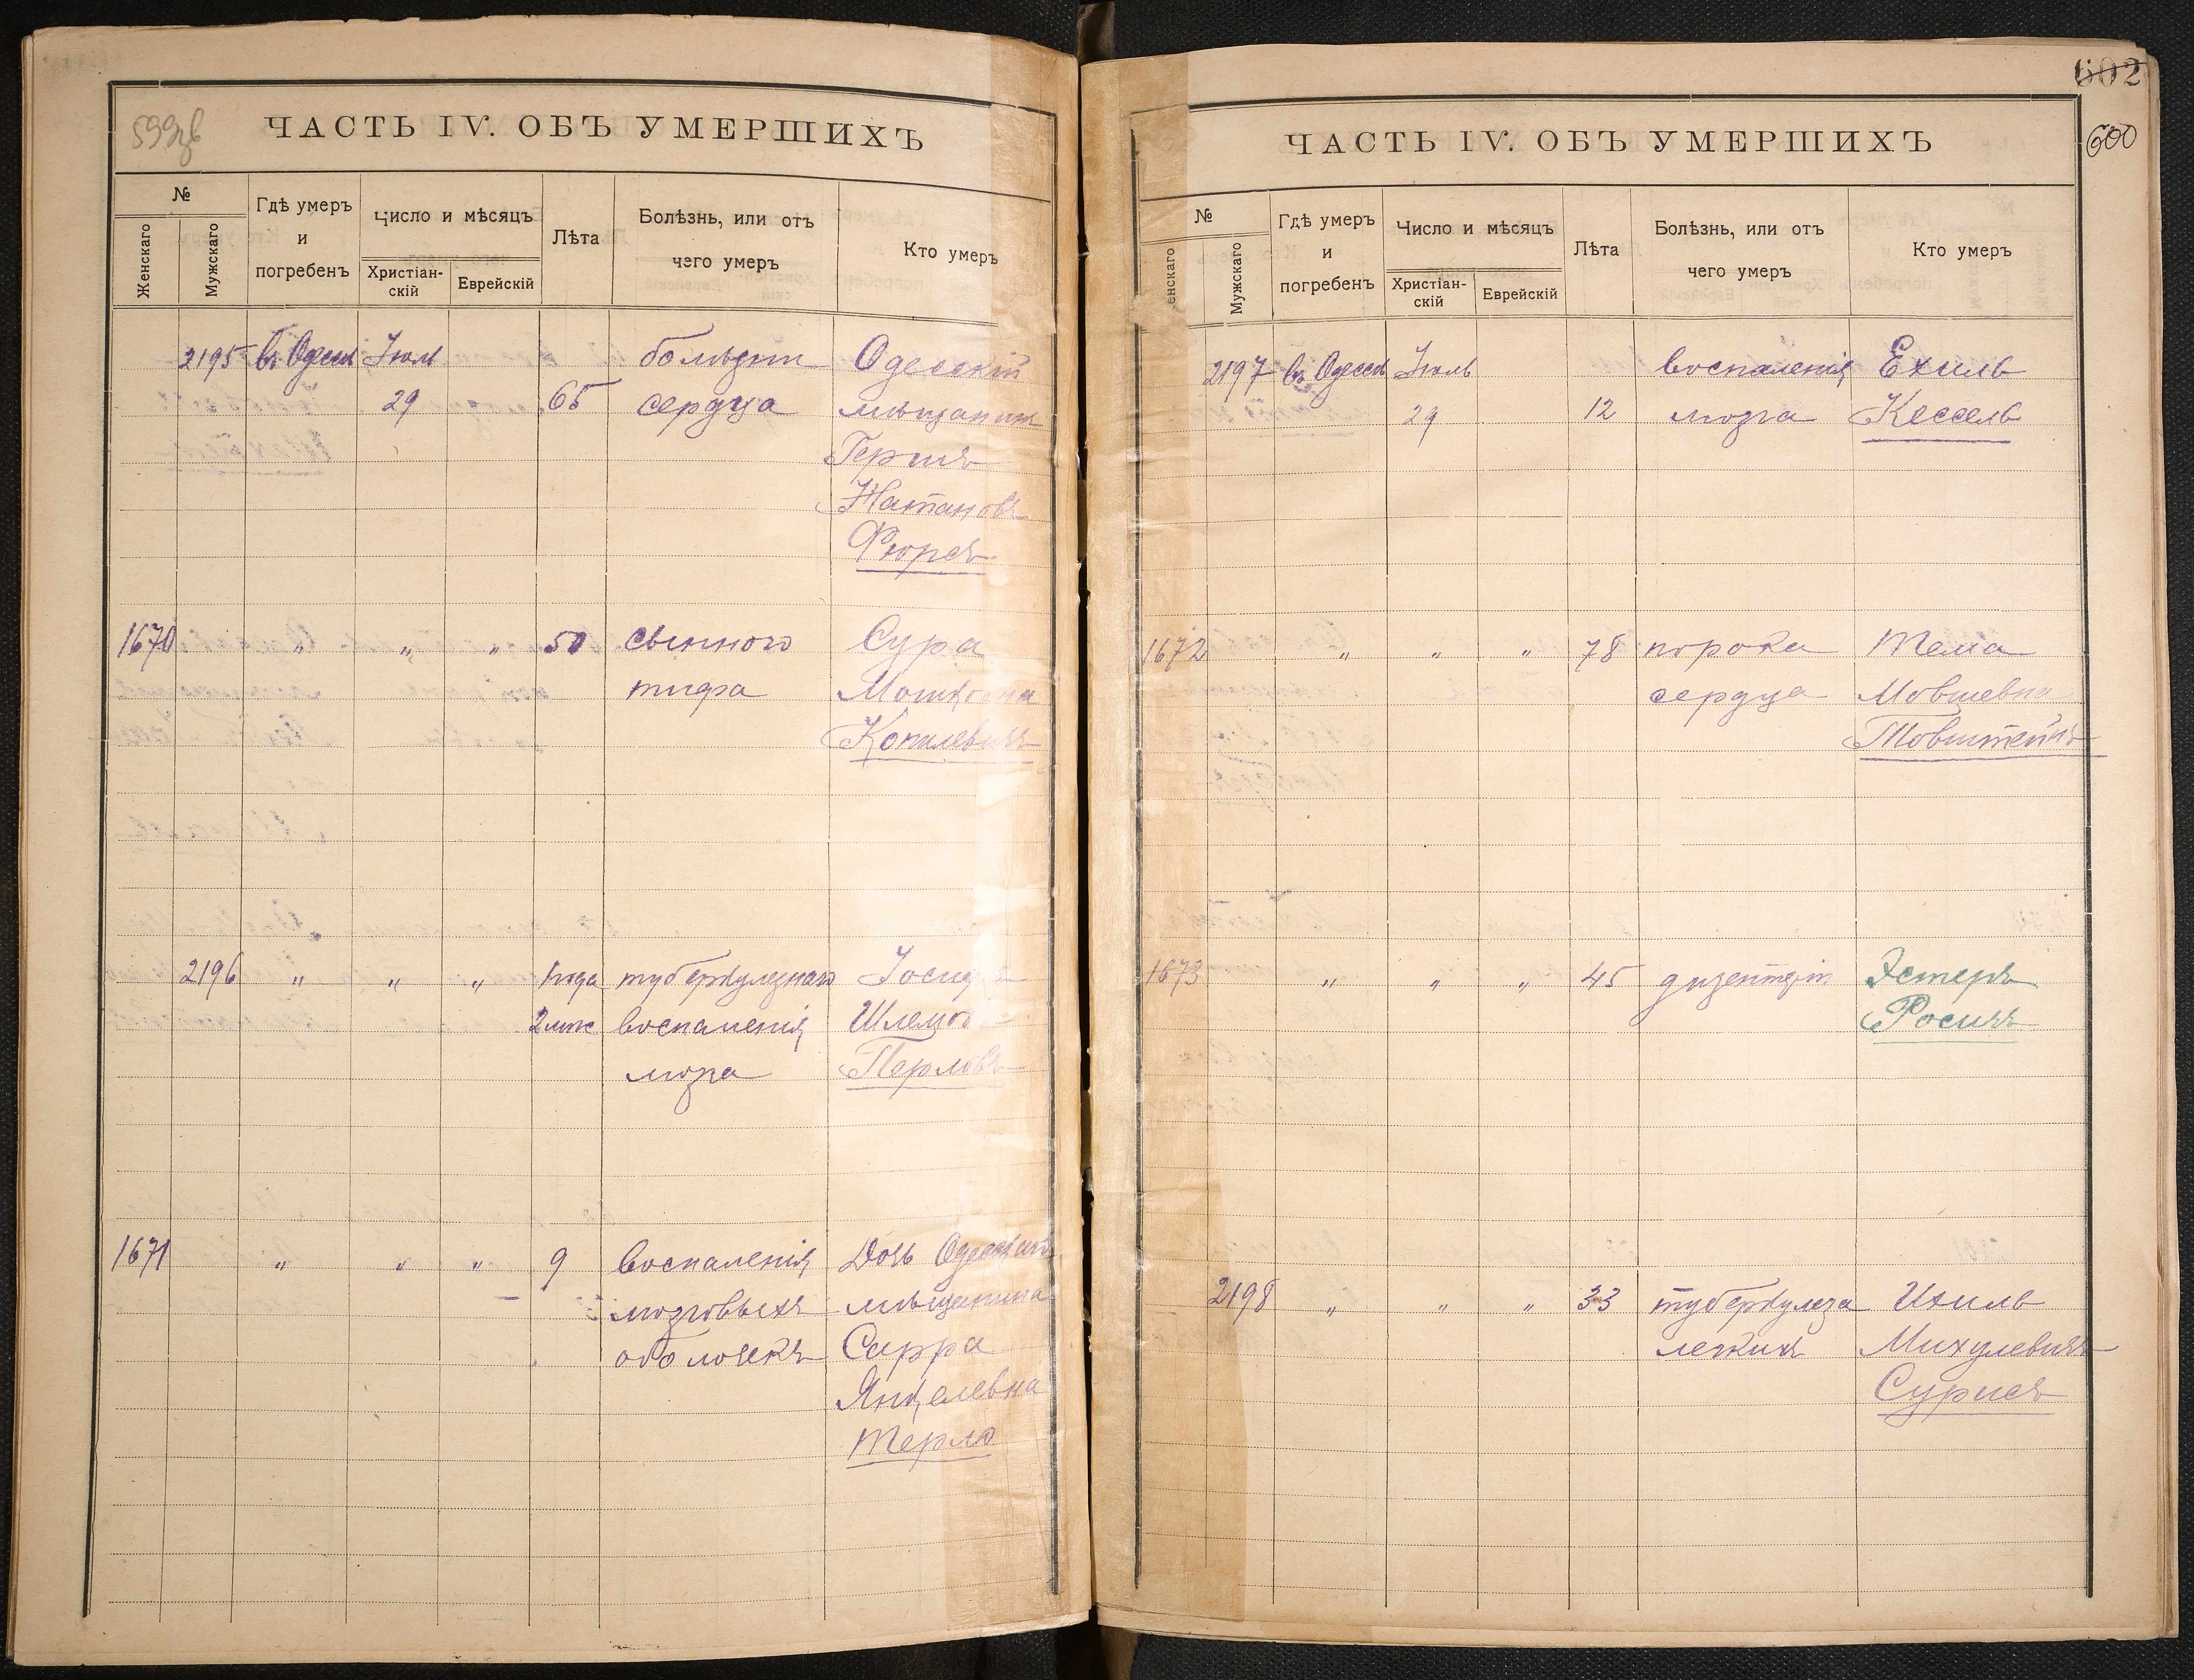 599об
ЧАСТЬ IV. ОБЪ УМЕРШИХЪ
№
Женскаго
Мужскаго
Гдѣ умеръ
и
погребенъ
Число и мѣсяцъ
Христіан-
скій
Еврейскій
Лѣта
Болѣзнь, или отъ
чего умеръ
Кто умеръ
2195 въ Одессѣ Іюль болѣзни Одесскій
29 65 сердца мѣщанинъ
Гершъ
Натановъ
Фюрсъ
1670 " " " 50 сыпного Сура
тифа Мошковна
Копилевичъ
2196 " " " 1 года туберкулезнаго Іосиф
2 мѣс воспаленія Шлемов
мозга Перловъ
1671 " " " 9 воспаленія Дочь Одесскаго
мозговыхъ мѣщанина
оболочекъ Сарра
Янкелевна
Терло
602
600
ЧАСТЬ IV. ОБЪ УМЕРШИХЪ
№
енскаго
Мужскаго
Гдѣ умеръ
и
погребенъ
Число и мѣсяцъ
Христіан-
скій
Еврейскій
Лѣта
Болѣзнь, или отъ
чего умеръ
Кто умеръ
2197 въ Одессѣ Іюль воспаленія Ехиль
29 12 мозга Кессель
1672 " " " 78 порока Тема
сердца Мовшевна
Товштейнъ
1673 " " " 45 дизентеріи Эстеръ
Росинъ
2198 " " " 33 туберкулеза Ихиль
легкихъ Михулевичъ
Сурисъ